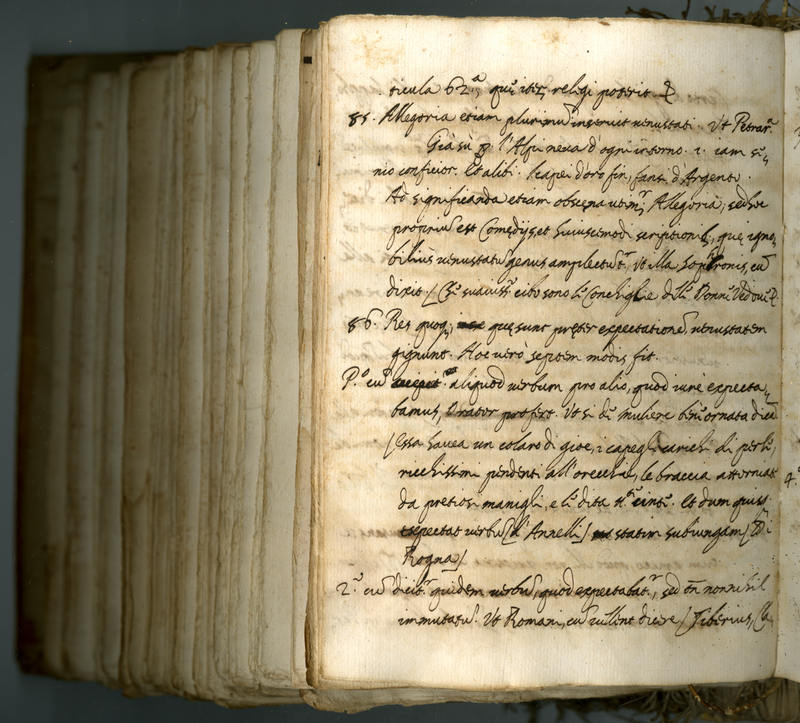 ticula 62.ª, quę iter, religi poterit &.
85. Allegoria etiam plurimū inservit venustati. Ut Petrar.ª
Già sù p l'Alpi neva d'ogni intorno. i. iam se-
nio conficior. Et alibi. I capei d'oro fin, farsi d'Argento.
Ad significanda etiam obscęna utim.r Allegoria; sed hoc
propriū est Comędijs, et huiuscemodi scriptionib., quę igno-
bilius venustatū genus amplectut.r, Ut illa Sophronis, cū
dixit. / suaviss.° cibo sono le Conchiglie delle Donne Vedove &.
86. Res quoq; quę sunt pręter expectationē, venustatem
gignunt. Hoc verò septem modis fit.
P.° cū aliquod verbum pro alio, quod iurè expecta-
bamus, Orator profert. Ut si de muliere benè ornata dicā
/ Essa havea un colaro di gioe, i capegli carichi di perle,
ricchissimi pendenti all'orecchie, le braccia attorniate
da pretiosi manigli, e le dita tutte cinte. Et dum quis
expectat verbū [d'Annelli] statim subiungam [Di
Rogna]
2.° cū dicit.r quidem verbū, quod expectabat.r, sed tn̄ nonnihil
immutatū. Ut Romani, cū vellent dicere / Tiberius, Cla-